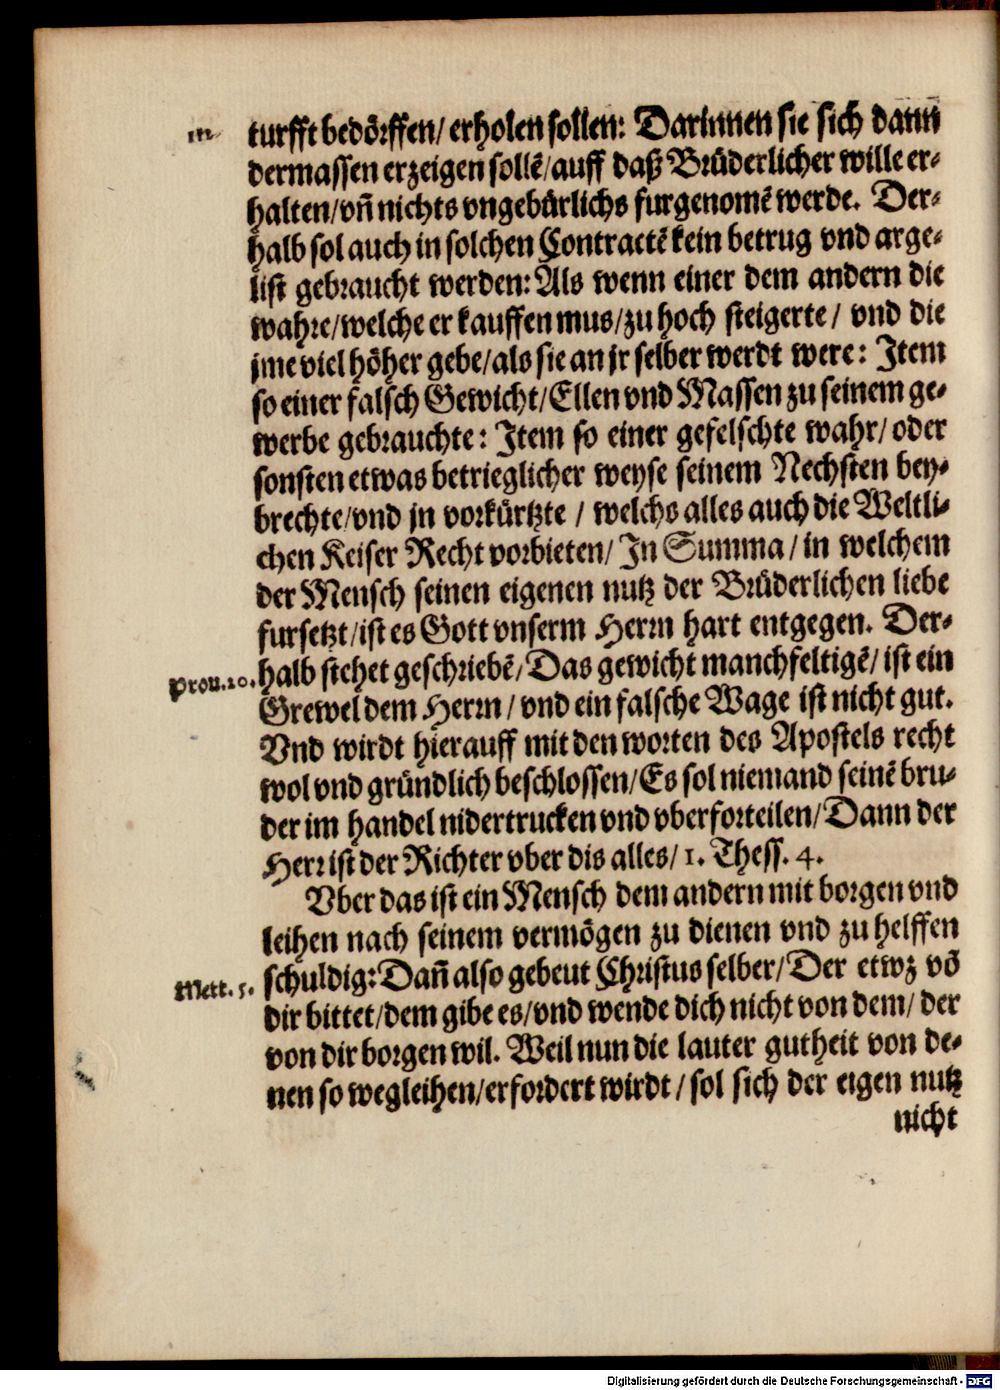 turfft bedörffen/ erholen sollen: Darinnen sie sich dann
dermassen erzeigen sollẽ/ auff daß Brüderlicher wille er-
halten/ vñ nichts vngebürlichs furgenomẽ werde. Der-
halb sol auch in solchen Contractẽ kein betrug vnd arge-
list gebraucht werden: Als wenn einer dem andern die
wahre/ welche er kauffen mus/ zu hoch steigerte / vnd die
jme viel höher gebe/ als sie an jr selber werdt were: Item
so einer falsch Gewicht/ Ellen vnd Massen zu seinem ge-
werbe gebrauchte: Item so einer gefelschte wahr/ oder
sonsten etwas betrieglicher weyse seinem Nechsten bey-
brechte/ vnd jn vorkürtzte / welchs alles auch die Weltli-
chen Keiser Recht vorbieten/ In Summa / in welchem
der Mensch seinen eigenen nutz der Brüderlichen liebe
fursetzt/ ist es Gott vnserm Herrn hart entgegen. Der-
Prou. 20. halb stehet geschriebẽ/ Das gewicht manchfeltigẽ/ ist ein
Grewel dem Herrn / vnd ein falsche Wage ist nicht gut.
Vnd wirdt hierauff mit den worten des Apostels recht
wol vnd gründlich beschlossen/ Es sol niemand seinẽ bru-
der im handel nidertrucken vnd vberforteilen/ Dann der
Herr ist der Richter vber dis alles/ 1. Thess. 4.
Vber das ist ein Mensch dem andern mit borgen vnd
leihen nach seinem vermögen zu dienen vnd zu helffen
Matt. 5. schuldig: Dañ also gebeut Christus selber/ Der etwz võ
dir bittet/ dem gibe es/ vnd wende dich nicht von dem/ der
von dir borgen wil. Weil nun die lauter gutheit von de-
nen so wegleihen/ erfordert wirdt / sol sich der eigen nutz
nicht
Digitalisierung gefördert durch die Deutsche Forschungsgemeinschaft - DFG